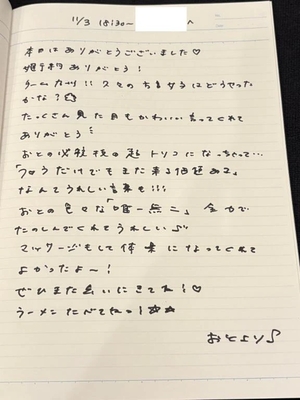 11/3 18:30~
本日はありがとうございました♡
ありがとう!
チーム九州!! 久々の はどうやった
かな?
たっくさん見た目もかわいい言ってくれて
ありがとう
おとの必殺技の 超 トリコになっちゃって…
「 だけでもまた来る価値ある」
なんてうれしい言葉も!!!
おとの色々な「唯一無二」 全力で
たのしんでくれてうれしい♪
マッサージもして体 楽になってくれて
よかったよ〜!
ぜひまた会いにきてね!♡
ラーメンたべてねっ!☆☆
おとより♪